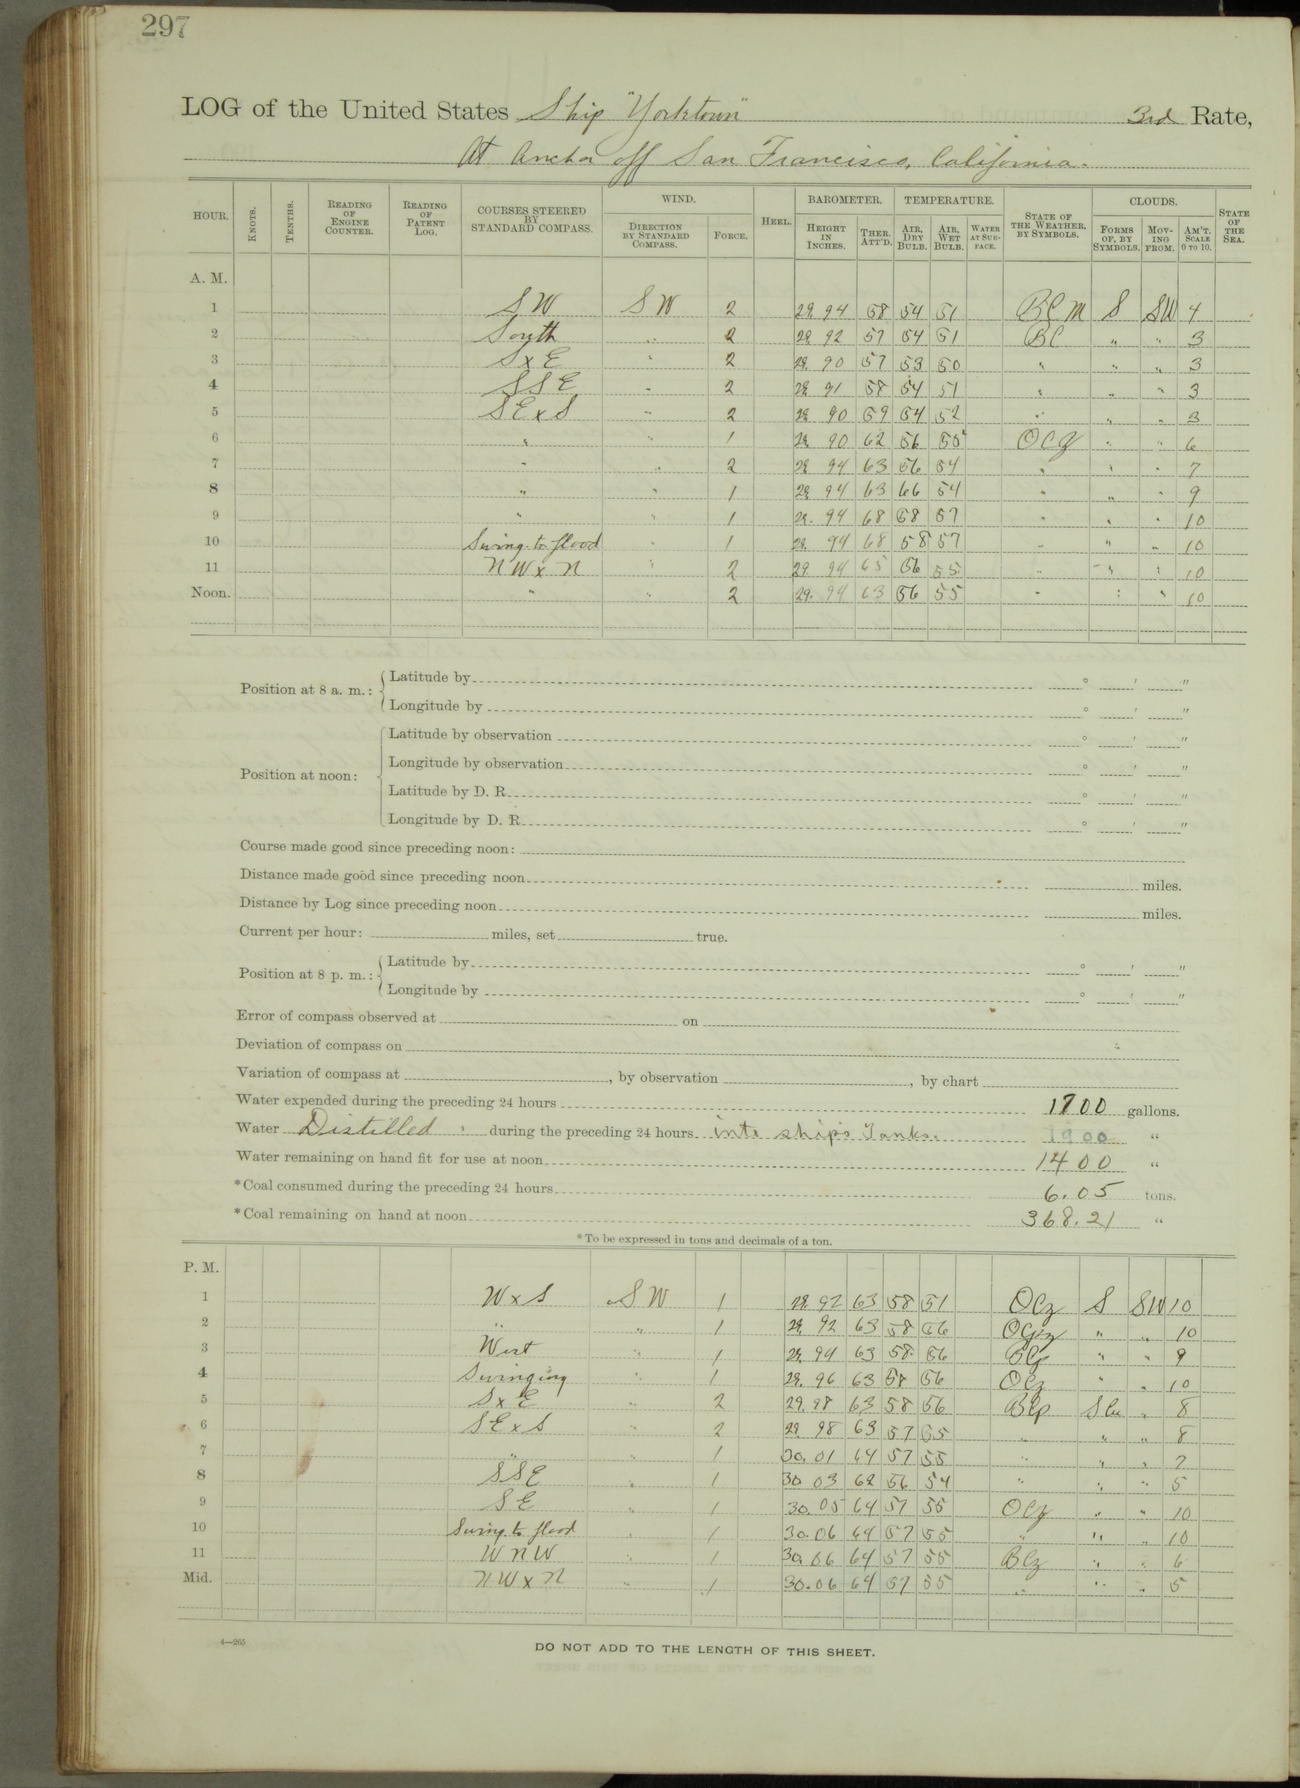 297
LOG of the United States Ship "Yorktown" 3rd Rate,
At Anchor off San Francisco, California.
HOUR. KNOTS. TENTHS. READING OF ENGINE COUNTER. READING OF PATENT LOG. COURSES STEERED BY STANDARD COMPASS. WIND. DIRECTION BY STANDARD COMPASS. FORCE. HEEL. BAROMETER. HEIGHT IN INCHES. THER. ATT'D. TEMPERATURE. AIR, DRY BULB. AIR, WET BULB. WATER AT SURFACE. STATE OF THE WEATHER, BY SYMBOLS. CLOUDS. FORMS OF, BY SYMBOLS. MOVING FROM. AM'T. SCALE 0 TO 10. STATE OF THE SEA.
A. M.
1 SW SW 2 29.94 58 54 51 BCM S SW 4
2 South " 2 29.92 57 54 51 BC " " 3
3 SxE " 2 29.90 57 53 50 " " " 3
4 SSE " 2 29.91 58 54 51 " " " 3
5 SExS " 2 29.90 59 54 52 " " " 3
6 " " 1 29.90 62 56 55 OCZ " " 6
7 " " 2 29.94 63 56 54 " " " 7
8 " " 1 29.94 63 66 54 " " " 9
9 " " 1 29.94 68 58 57 " " " 10
10 Swing to flood " 1 29.94 68 58 57 " " " 10
11 NWxN " 2 29.94 65 56 55 " " " 10
Noon. " " 2 29.94 63 56 55 " " " 10
Position at 8 a. m.: Latitude by ° ' "
Longitude by ° ' "
Position at noon: Latitude by observation ° ' "
Longitude by observation ° ' "
Latitude by D. R. ° ' "
Longitude by D. R. ° ' "
Course made good since preceding noon:
Distance made good since preceding noon miles.
Distance by Log since preceding noon miles.
Current per hour: miles, set true.
Position at 8 p. m.: Latitude by ° ' "
Longitude by ° ' "
Error of compass observed at on
Deviation of compass on
Variation of compass at , by observation , by chart
Water expended during the preceding 24 hours 1700 gallons.
Water Distilled during the preceding 24 hours into ship's Tanks. 1900 "
Water remaining on hand fit for use at noon 1400 "
*Coal consumed during the preceding 24 hours 6.05 tons.
*Coal remaining on hand at noon 368.21 "
*To be expressed in tons and decimals of a ton.
P. M.
1 WxS SW 1 29.92 63 58 51 OCZ S SW 10
2 " " 1 29.92 63 58 56 " " 10
3 West " 1 29.94 63 58 56 " " 9
4 Swinging " 1 29.96 63 58 56 OCZ " " 10
5 SxE " 2 29.98 63 58 56 BCP S Cu " 8
6 SExS " 2 29.98 63 57 55 " " " 8
7 " " 1 30.01 64 57 55 " " " 7
8 SSE " 1 30.03 62 56 54 " " " 5
9 SE " 1 30.05 64 57 55 OCZ " " 10
10 Swing to flood " 1 30.06 64 57 55 " " " 10
11 WNW " 1 30.06 64 57 55 BCZ " " 6
Mid. NWxN " 1 30.06 64 57 55 " " " 5
4—265
DO NOT ADD TO THE LENGTH OF THIS SHEET.